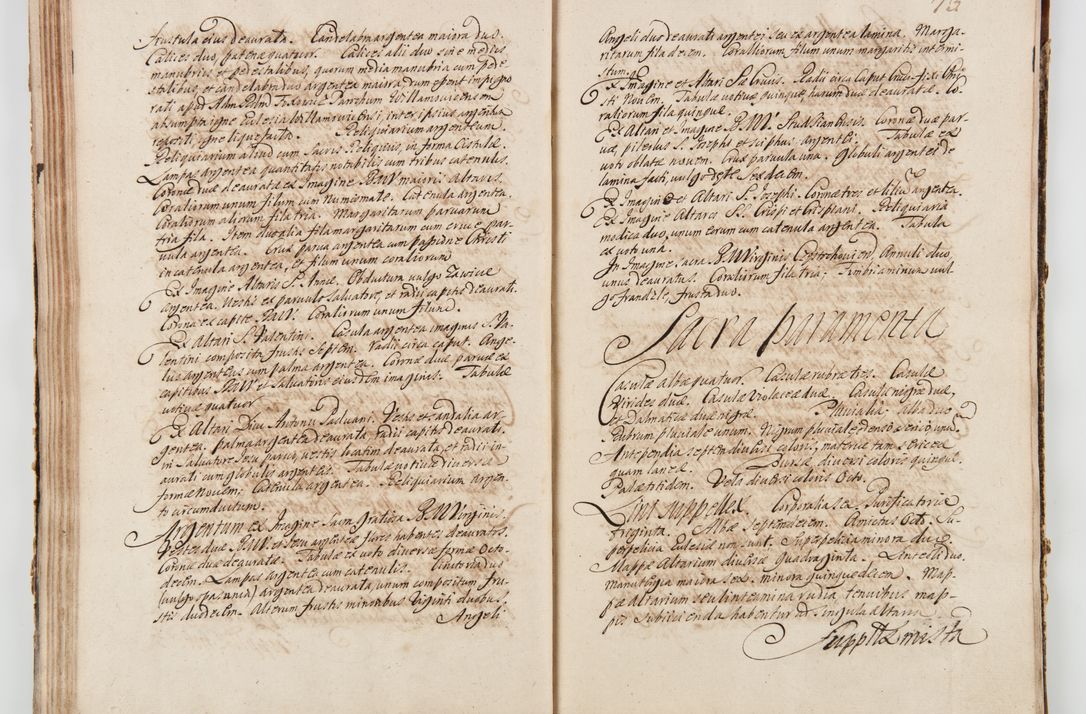 frustula eius deaurata. Candelabra argentea maiora duo.
Calices duo, patenæ quatuor. Calices alii duo sine mediis
manubriis et pedestalibus, quorum media manubria cum pede-
stalibus, et candelabra duo argentea maiora, dum essent impigno-
rati apud Adm Rndm Parochum
absumpta igne Ecclesia interipsius argentea
reperiti, igne liquefacta. Reliquiarium argenteum.
Reliquiarium aliud cum Sacris Reliquiis, in forma Cistulæ.
Lampas argentea quantitatis notabilis cum tribus catenulis.
Coronæ duæ deauratæ ex Imagine BMV maioris Altaris.
Coraliorum unum filum cum Numismate. Catenula argentea.
Coraliorum aliorum fila tria. Margaritarum parvarum
tria fila. Item duo alia fila margaritarum cum cruce par-
vula argentea. Crux parva argentea cum passione Christi
in catenula argentea, et filum unum coraliorum
Ex Imagine Altaris S. Annæ. Obductura vulgo Zawoiue
argentea. Vestis ex parvulo Salvatore, et radii capitis deaurati.
Corona ex capite BMV. Coraliorum unum filum.
Ex Altari S. Valentini. Casula argentea imaginis S. Va-
lentini composita frustis Septem. Radii circa caput. Ange-
lus argenteus cum palma argentea. Coronæ duæ parvæ ex
capitibus BMV et Salvatoris eiusdem imaginis. Tabulæ
votivæ quatuor
Ex Altari Divi Antonii Paduani. Vestis et sandalia ar-
gentea, palma argentea deaurata, radii capitis deaurati,
in Salvatore Jesu parvo, vestis locatim deaurata, et radii in-
aurati cum globulis argenteis. Tabulæ votivæ diversæ
formæ Novem. Catenula argentea. Reliquiarium argen-
to circumductum.
Argentum ex Imagine Sacra Gratiosa BMVirginis.
Vestes duæ BMV et Jesu argenteæ flores habentes deauratos.
Coronæ duæ deauratæ. Tabulæ ex voto diversæ formæ Octo-
decim. Lampas argentea cum catenulis. Cinctoria duo
(vulgo) argentea deaurata, unum compositum fru-
stis duodecim. Alterum frustis minoribus Viginti duobus.
Angeli
Angeli duo deaurati argentei seu ex argentea lamina. Marga-
ritarum fila decem. Coralliorum filum unum margaritis intermi-
stum.
Ex Imagine et Altari Stæ Crucis. Radii circa Caput Crucifixi Chri-
sti Novem. Tabulæ votivæ quinque, harum duæ deauratæ. Co-
raliorum fila quinque.
Ex Altari et Imagine BMV. Coronæ duæ par-
væ, pileolus S. Josephi et sciphus argentei. Tabulæ ex
voti oblatæ novem. Crux parvula una. Globuli argentei de
lamina facti, vulgo dęte Sexdecim.
Ex Imagine et Altari S. Josephi. Coronæ tres et lilium argentea.
Ex Imagine Altaris SS. Crispi et Crispiani. Reliquiaria
modica duo, unum eorum cum catenula argentea. Tabula
ex voto una.
In Imagine Sacra BMVirginis Częstochovien, Annuli duo,
unus deauratus. Coraliorum fila tria. Fimbriaminum vul-
go frandzle, frusta duo.
Sacra paramenta
Casulæ albæ quatuor. Casulæ rubræ tres. Casulæ
Virides duæ. Casulæ violaceæ duæ. Casulæ nigræ duæ,
et Dalmaticæ duæ nigræ. Pluvialia alba duo
Rubrum pluviale unum. Nigrum pluviale denso serico unum.
Antependia septem diversi coloris, materiæ tam sericeæ
quam laneæ. Bursæ, diversi coloris quinque.
Pallæ itidem. Vela diversi coloris Octo.
Lint suppellex. Corporalia sex. Purificatoria
triginta. Albæ Septemdecim. Amictus Octo. Su-
perpellicia Ecclesiæ non sunt. Superpellicia minora duo.
Mappæ Altarium diversæ Quadraginta. Lintea duo.
Manutergia maiora Sex, minora quinquedecem. Map-
pæ altarium seu linteamina rudia tenuibus map-
pis subiicienda habentur ad singula altaria
Suppellex mista